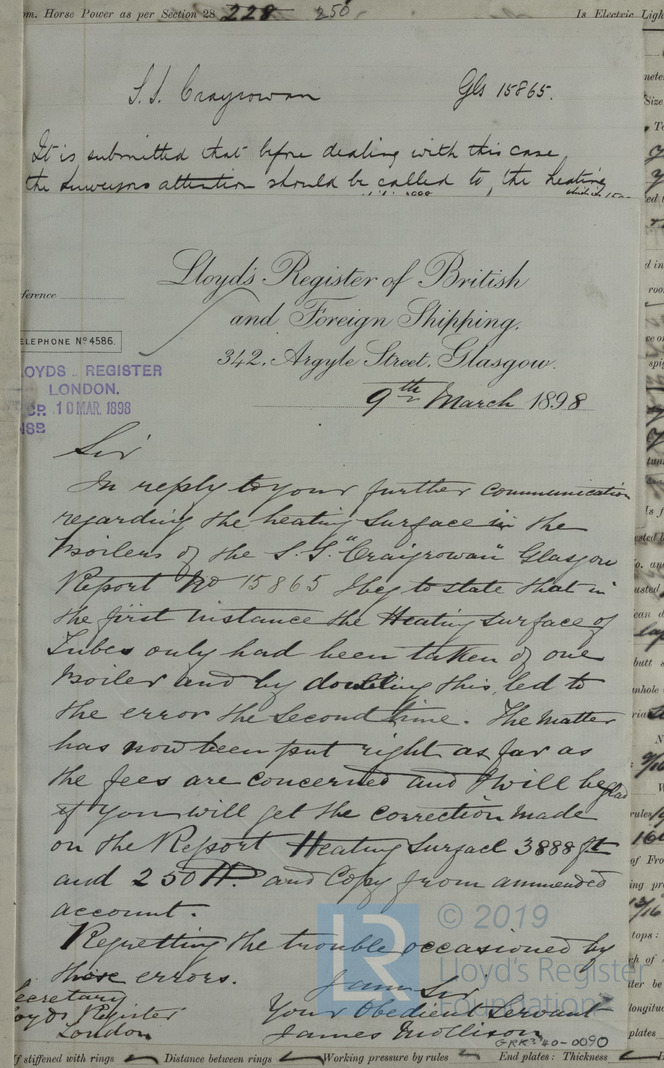 om. Horse Power as per Section 28 228 250
Is Electric Ligh
S.S. Craigrowan Gls 15865.
It is submitted that before dealing with this case
the Surveyors attention should be called to, the heating
Lloyd's Register of British
and Foreign Shipping.
342, Argyle Street, Glasgow.
ference
ELEPHONE Nº 4586.
LOYDS REGISTER
LONDON.
10 MAR. 1898
9th March 1898
Sir
In reply to your further communication
regarding the heating surface in the
Boilers of the S.S. "Craigrowan" Glasgow
Report No 15865 I beg to state that in
the first instance the Heating surface of
Tubes only had been taken of one
Boiler and by doubling this, led to
the error the second time. The matter
has now been put right as far as
the fees are concerned and I will be glad
if you will get the correction made
on the Report Heating Surface 3888 ft
and 250 H.P. and Copy from ammended
account.
Regretting the trouble occasioned by
these errors.
I am Sir
Your Obedient Servant
James Mollison
ecretary
oyds Register
London
© 2019
Lloyd's Register
Foundation
GRK340-0090
If stiffened with rings Distance between rings Working pressure by rules End plates: Thickness